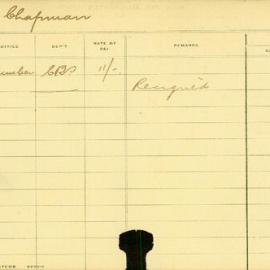 Chapman
OFFICE DEP'T RATE OF PAY REMARKS
umber 11/- Resigned